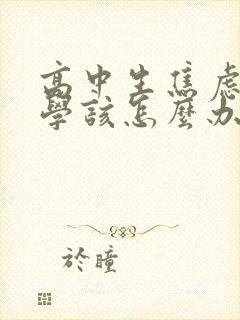 高中生焦慮
學該怎麼办
於瞳